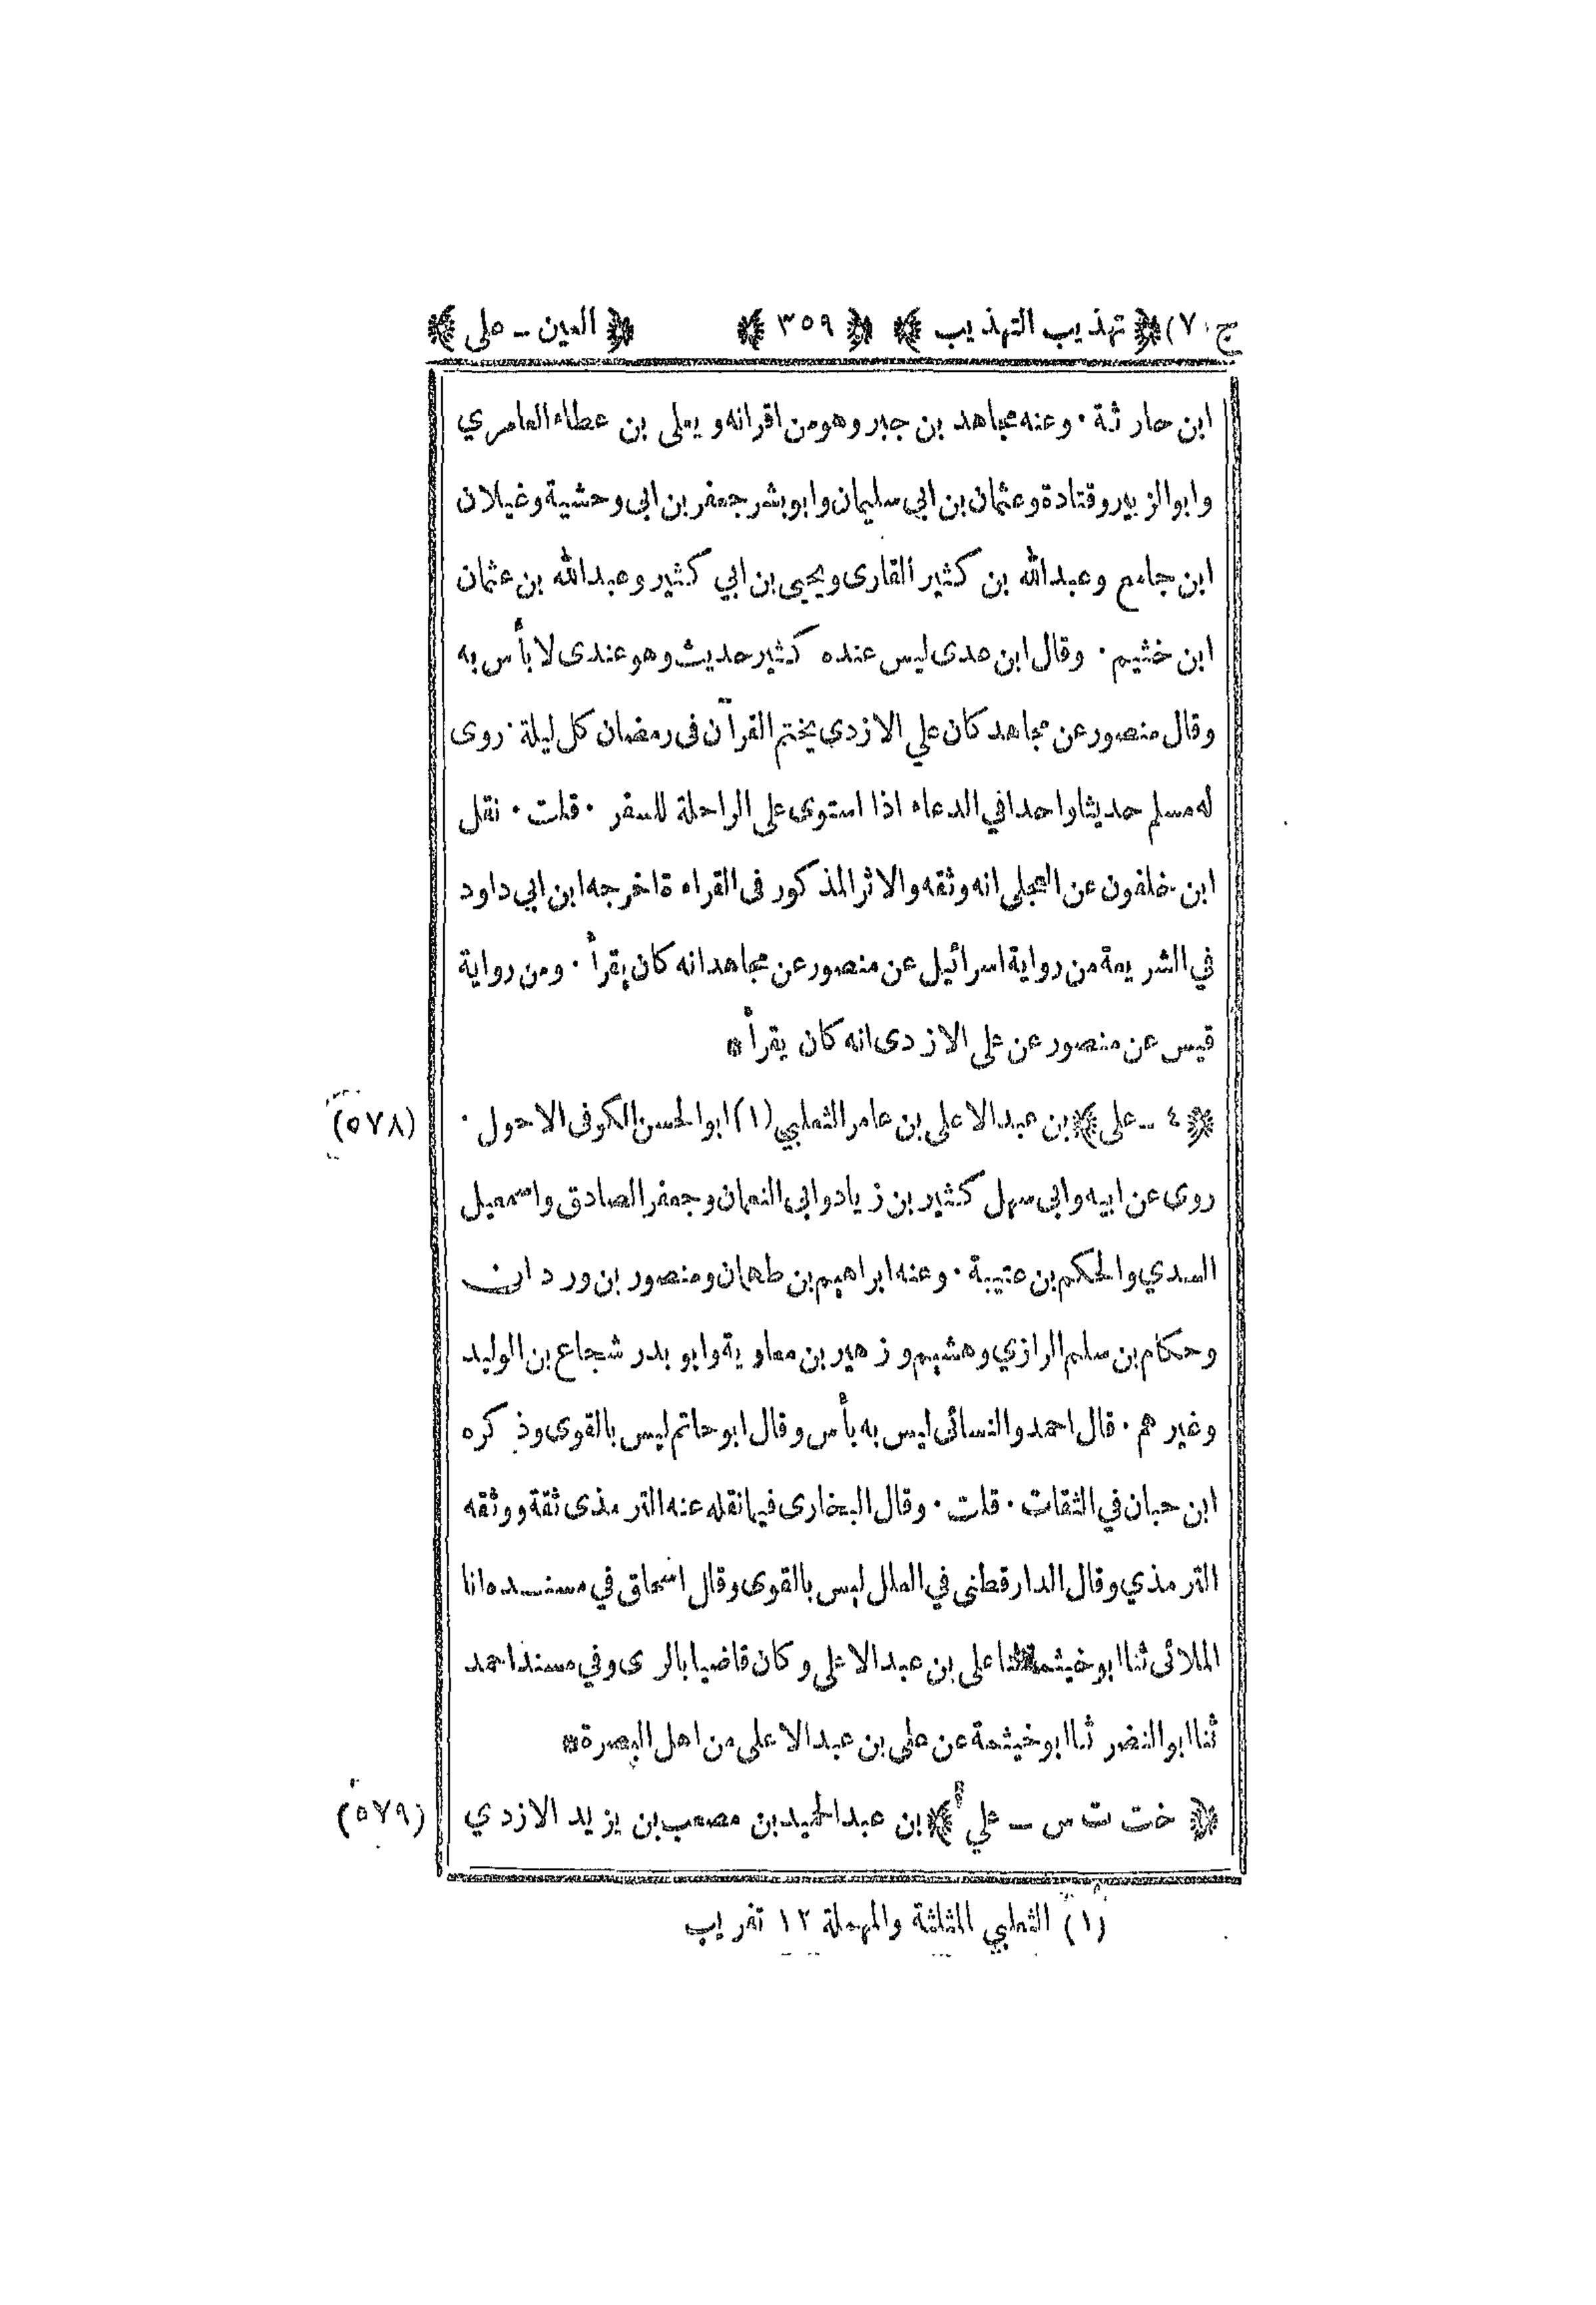 ج (٧) ﴿ تهذيب التهذيب ﴾ ﴿ ٣٥٩ ﴾ ﴿ العين - على ﴾
ابن حارثة · وعنه مجاهد بن جبر وهو من اقرانه و يعلى بن عطاء العامري
وابو الزبير وقتادة وعثمان بن ابي سليمان وابو بشر جعفر بن ابى وحشية وغيلان
ابن جامع وعبدالله بن كثير القارى ويحيى بن ابي كثير وعبدالله بن عثمان
ابن خثيم · وقال ابن عدى ليس عنده كثير حديث وهو عندى لا بأس به
وقال منصور عن مجاهد كان علي الازدي يختم القرآن فى رمضان كل ليلة · روى
له مسلم حديثا واحدا في الدعاء اذا استوى على الراحلة للسفر · قلت · نقل
ابن خلفون عن العجلى انه وثقه والاثر المذكور فى القراءة اخرجه ابن ابي داود
في الشريعة من رواية اسرائيل عن منصور عن مجاهد انه كان يقرأ · ومن رواية
قيس عن منصور عن على الازدى انه كان يقرأ *
﴿ ٤ - على ﴾ بن عبد الاعلى بن عامر الثعلبي (١) ابو الحسن الكوفى الاحول · (٥٧٨)
روى عن ابيه وابى سهل كثير بن زياد وابى النعمان وجعفر الصادق واسمعيل
السدي والحكم بن عتيبة · وعنه ابراهيم بن طهمان ومنصور بن وردان
وحكام بن سلم الرازي وهشيم و زهير بن معاوية وابو بدر شجاع بن الوليد
وغيرهم · قال احمد والنسائى ليس به بأس وقال ابو حاتم ليس بالقوى وذكره
ابن حبان في الثقات · قلت · وقال البخارى فيما نقله عنه الترمذى ثقة ووثقه
الترمذي وقال الدارقطنى في العلل ليس بالقوى وقال اسحاق في مسنده انا
الملائى ثنا ابو خيثمة ثنا على بن عبد الاعلى وكان قاضيا بالرى وفي مسند احمد
ثنا ابو النضر ثنا ابو خيثمة عن على بن عبد الاعلى من اهل البصرة *
﴿ خت ت س - علي ﴾ بن عبد الحميد بن مصعب بن يزيد الازدي (٥٧٩)
(١) الثعلبي المثلثة والمهملة ١٢ تقريب